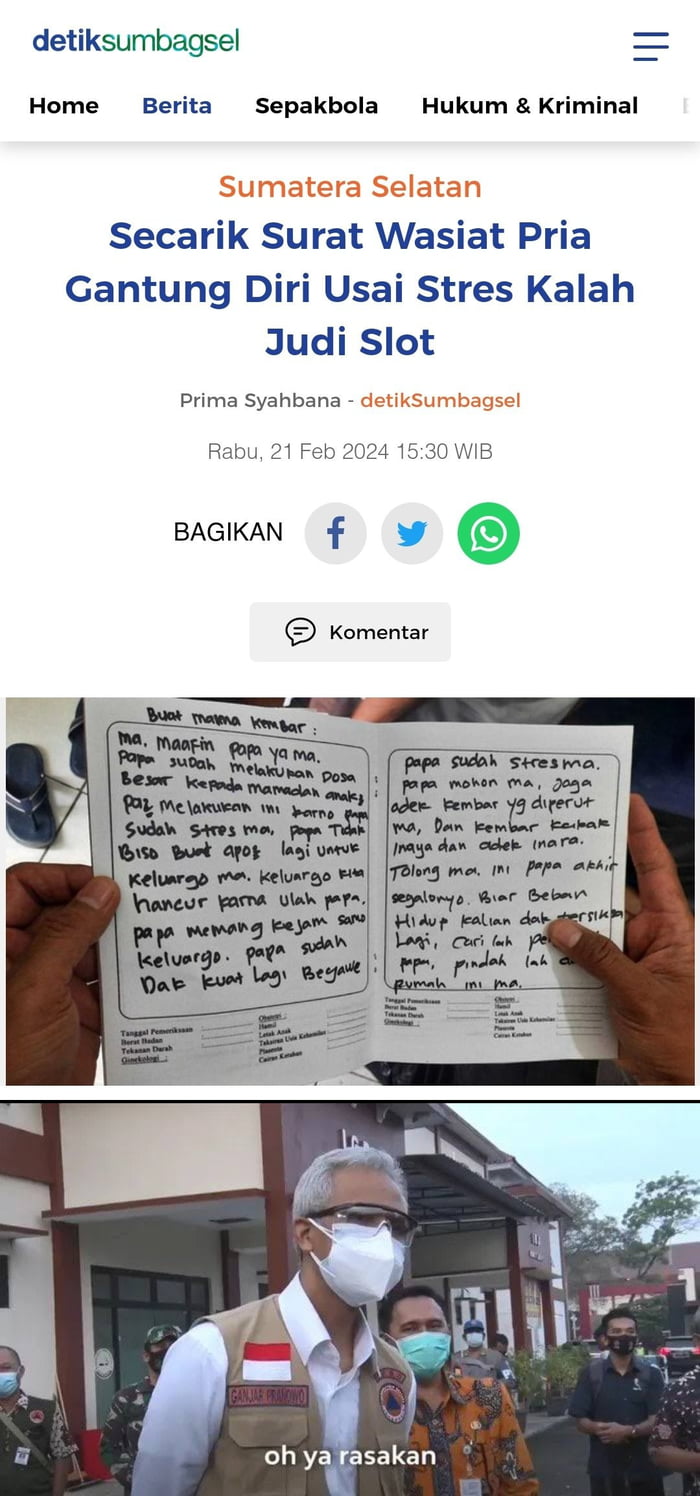 detiksumbagsel
Home Berita Sepakbola Hukum & Kriminal
Sumatera Selatan
Secarik Surat Wasiat Pria
Gantung Diri Usai Stres Kalah
Judi Slot
Prima Syahbana - detikSumbagsel
Rabu, 21 Feb 2024 15:30 WIB
BAGIKAN
Komentar
Buat mama kembar :
Ma. Maafin Papa ya ma.
Papa sudah melakukan Dosa
Besar kepada mamadan anak2
Pa2 Melakukan ini karno papa
Sudah stres ma, papa Tidak
Biso Buat apo2 lagi untuk
keluargo ma. keluargo kita
hancur karna ulah papa.
papa memang kejam samo
keluargo. papa sudah
Dak kuat Lagi Begawe
Tanggal Pemeriksaan
Berat Badan
Tekanan Darah
Ginekologi :
Obstetri :
Hamil
Letak Anak
Taksiran Usia Kehamilan
Plasenta
Cairan Ketuban
papa sudah stres ma.
papa mohon ma, Jaga
adek kembar yg diperut
ma, Dan kembar kakak
Inaya dan adek inara.
Tolong ma. ini papa akhir
segalonyo. Biar Beban
Hidup kalian dak tersiksa
Lagi, Cari lah
papa, pindah lah
Rumah ini ma.
Tanggal Pemeriksaan
Berat Badan
Tekanan Darah
Ginekologi :
Obstetri :
Hamil
Letak Anak
Taksiran Usia Kehamilan
Plasenta
Cairan Ketuban
GANJAR PRANOWO
oh ya rasakan